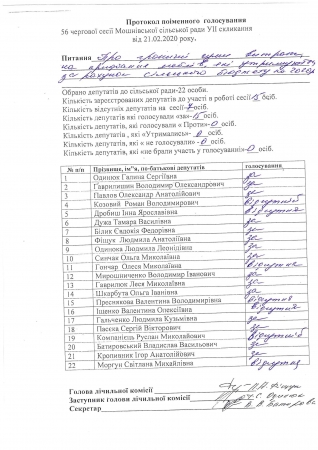 Протокол поіменного голосування
56 чергової сесії Мошнівської сільської ради УІІ скликання
від 21.02.2020 року.
Питання Про
за рахунок сільського бюджету на
Обрано депутатів до сільської ради-22 особи.
Кількість зареєстрованих депутатів до участі в роботі сесії-15 осіб.
Кількість відсутніх депутатів на сесії-7 осіб.
Кількість депутатів, які голосували «за»-15 осіб.
Кількість депутатів, які голосували « Проти»-0 осіб.
Кількість депутатів, які «Утримались»-0 осіб.
Кількість депутатів, які « не голосували» -0 осіб.
Кількість депутатів, які «не брали участь у голосуванні»-0 осіб.
№ п/п Прізвище, ім"я, по-батькові депутатів голосування
1 Одинюк Галина Сергіївна за
2 Гаврилишен Володимир Олександрович за
3 Павлов Олександр Анатолійович за
4 Козовий Роман Володимирович відсутній
5 Дробиш Інна Ярославівна відсутня
6 Дужа Тамара Василівна за
7 Білик Євдокія Федорівна за
8 Фіщук Людмила Анатоліївна за
9 Одинока Людмила Леонідівна за
10 Синчак Ольга Миколаївна за
11 Гончар Олеся Миколаївна відсутня
12 Мирошниченко Володимир Іванович за
13 Гаврилюк Леся Миколаївна за
14 Шкарбута Ольга Іванівна за
15 Преснякова Валентина Володимирівна відсутня
16 Іщенко Валентина Олексіївна відсутня
17 Гальченко Людмила Кузьмівна за
18 Пасєка Сергій Вікторович за
19 Компанієць Руслан Миколайович відсутній
20 Батировський Владислав Васильович за
21 Кропивник Ігор Анатолійович за
22 Моргун Світлана Михайлівна відсутня
Голова лічильної комісії
Заступник голови лічильної комісії
Секретар